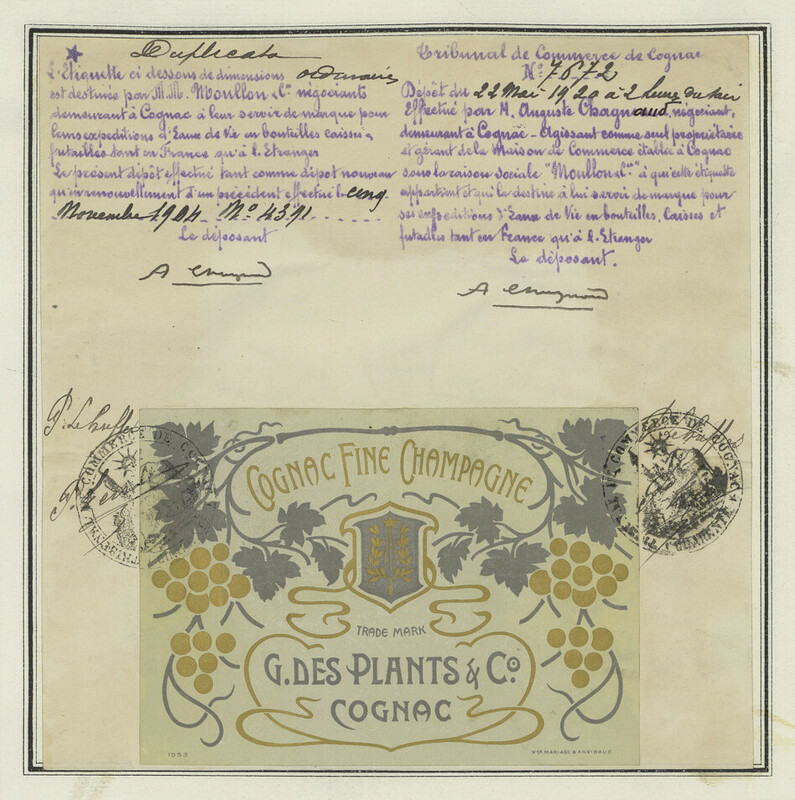 Duplicata
L'Etiquette ci dessous de dimensions ordinaires
est destinée par M.M. Moullon & Cie négociants
demeurant à Cognac à leur servir de marque pour
leurs expéditions d'Eaux de Vie en bouteilles caisses &
futailles tant en France qu'à l'Etranger
Le présent dépôt effectué tant comme dépot nouveau
qu'en renouvellement d'un précédent effectué le cinq
Novembre 1904 - No 4391
Le déposant
Tribunal de Commerce de Cognac
No 7672
Dépôt du 22 Mai 1920 à 2 heures du soir
Effectué par M. Auguste Chagnaud, négociant,
demeurant à Cognac - Agissant comme seul propriétaire
et gérant de la Maison de Commerce établie à Cognac
sous la raison sociale "Moullon & Cie" à qui cette étiquette
appartient et qui la destine à lui servir de marque pour
ses expéditions d'Eaux de Vie en bouteilles, Caisses et
futailles tant en France qu'à l'Etranger
Le déposant.
COMMERCE DE COGNAC
COMMERCE DE COGNAC
CHARENTE
COGNAC FINE CHAMPAGNE
TRADE MARK
G. DES PLANTS & Co.
COGNAC
1053